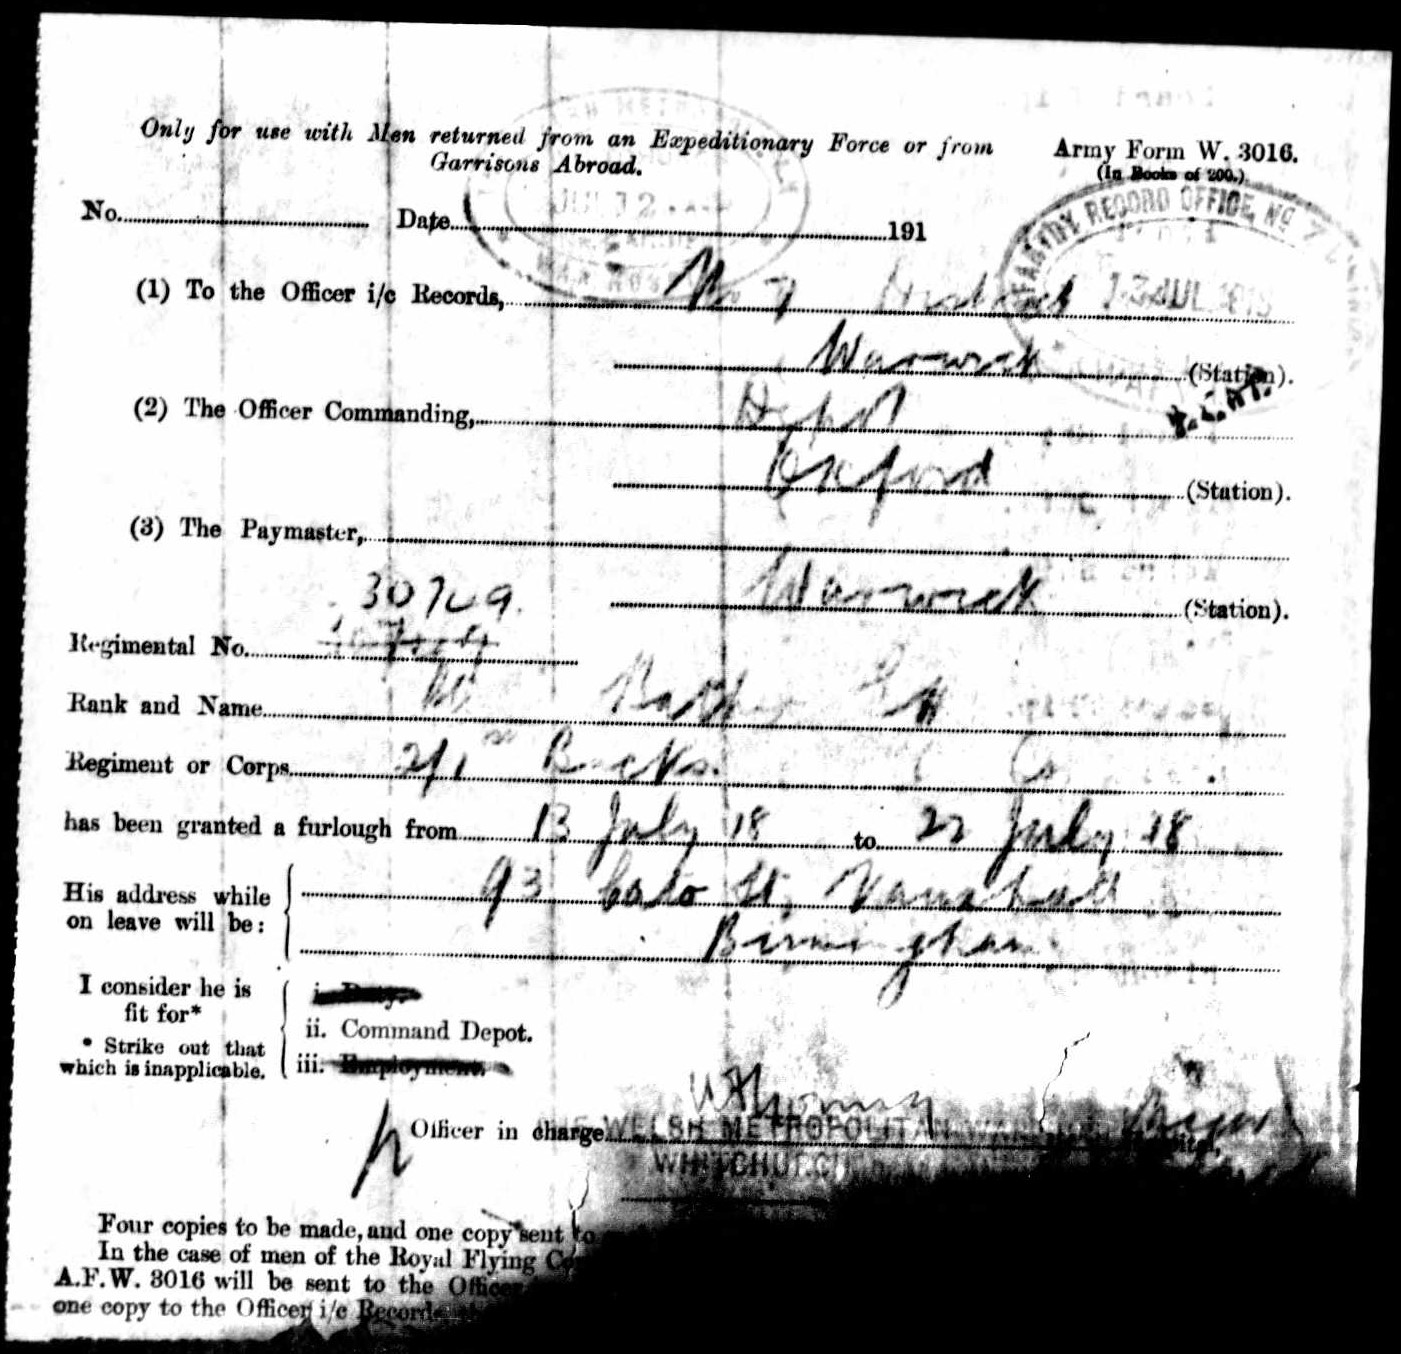 Only for use with Men returned from an Expeditionary Force or from
Garrisons Abroad.
Army Form W. 3016.
(In Books of 200.)
No. Date 191
INFANTRY RECORD OFFICE, No 7
13 JUL 1918
(1) To the Officer i/c Records, No 7 District
Warwick (Station).
(2) The Officer Commanding, Depot
Oxford (Station).
(3) The Paymaster,
Warwick (Station).
30769.
Regimental No.
Rank and Name
Regiment or Corps 2/1st Bucks.
has been granted a furlough from 13 July 18 to 22 July 18
His address while on leave will be: 93 Cato St, Vauxhall
Birmingham
I consider he is
fit for*
i. Duty.
ii. Command Depot.
iii. Employment.
* Strike out that
which is inapplicable.
Officer in charge WELSH METROPOLITAN WAR
WHITCHURCH
Four copies to be made, and one copy sent to
In the case of men of the Royal Flying
A.F.W. 3016 will be sent to the Officer
one copy to the Officer i/c Records